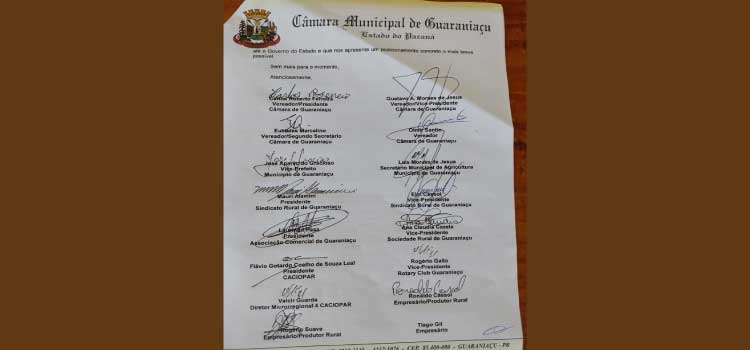 Câmara Municipal de Guaraniaçu
Estado do Paraná
até o Governo do Estado e que nos apresente um posicionamento concreto o mais breve
possível.
Sem mais para o momento,
Atenciosamente,
Carlos Roberto Ferreira
Vereador/Presidente
Câmara de Guaraniaçu
Gustavo A. Moraes de Jesus
Vereador/Vice-Presidente
Câmara de Guaraniaçu
Marcolino
Vereador/Segundo Secretário
Câmara de Guaraniaçu
Vereador
Câmara de Guaraniaçu
José Aparecido
Vice-Prefeito
Município de Guaraniaçu
Luis Moraes de Jesus
Secretário Municipal de Agricultura
Município de Guaraniaçu
Mauri
Presidente
Sindicato Rural de Guaraniaçu
Cassol
Vice-Presidente
Sindicato Rural de Guaraniaçu
Presidente
Associação Comercial de Guaraniaçu
Ana Claudia
Vice-Presidente
Sociedade Rural de Guaraniaçu
Flávio Gotardo Coelho de Souza Leal
Presidente
CACIOPAR
Rogério Gallo
Vice-Presidente
Rotary Club Guaraniaçu
Valcir Guarda
Diretor Microrregional 4 CACIOPAR
Ronaldo Cassol
Ronaldo Cassol
Empresário/Produtor Rural
Rogério Suave
Empresário/Produtor Rural
Tiago Gil
Empresário
CEP. 85.400-000 - GUARANIAÇU - PR